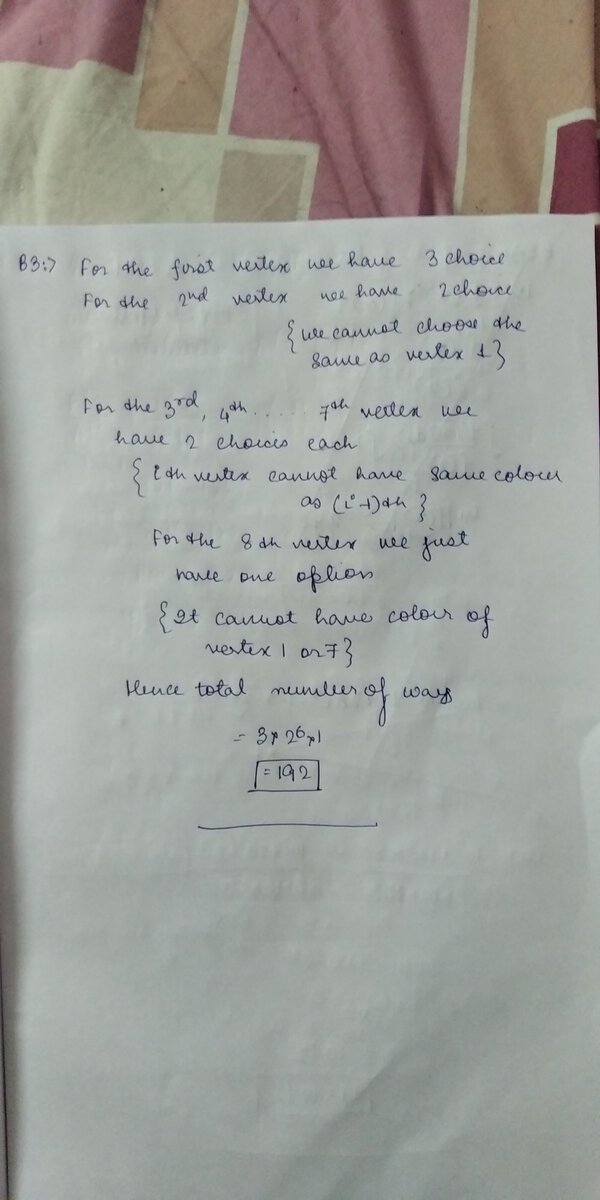 B3:> For the first vertex we have 3 choice
For the 2nd vertex we have 2 choice
{we cannot choose the
same as vertex 1}
For the 3rd, 4th ..... 7th vertex we
have 2 choices each
{ith vertex cannot have same colour
as (i-1)th}
For the 8th vertex we just
have one option
{It cannot have colour of
vertex 1 or 7}
Hence total number of ways
= 3×2⁶×1
= 192